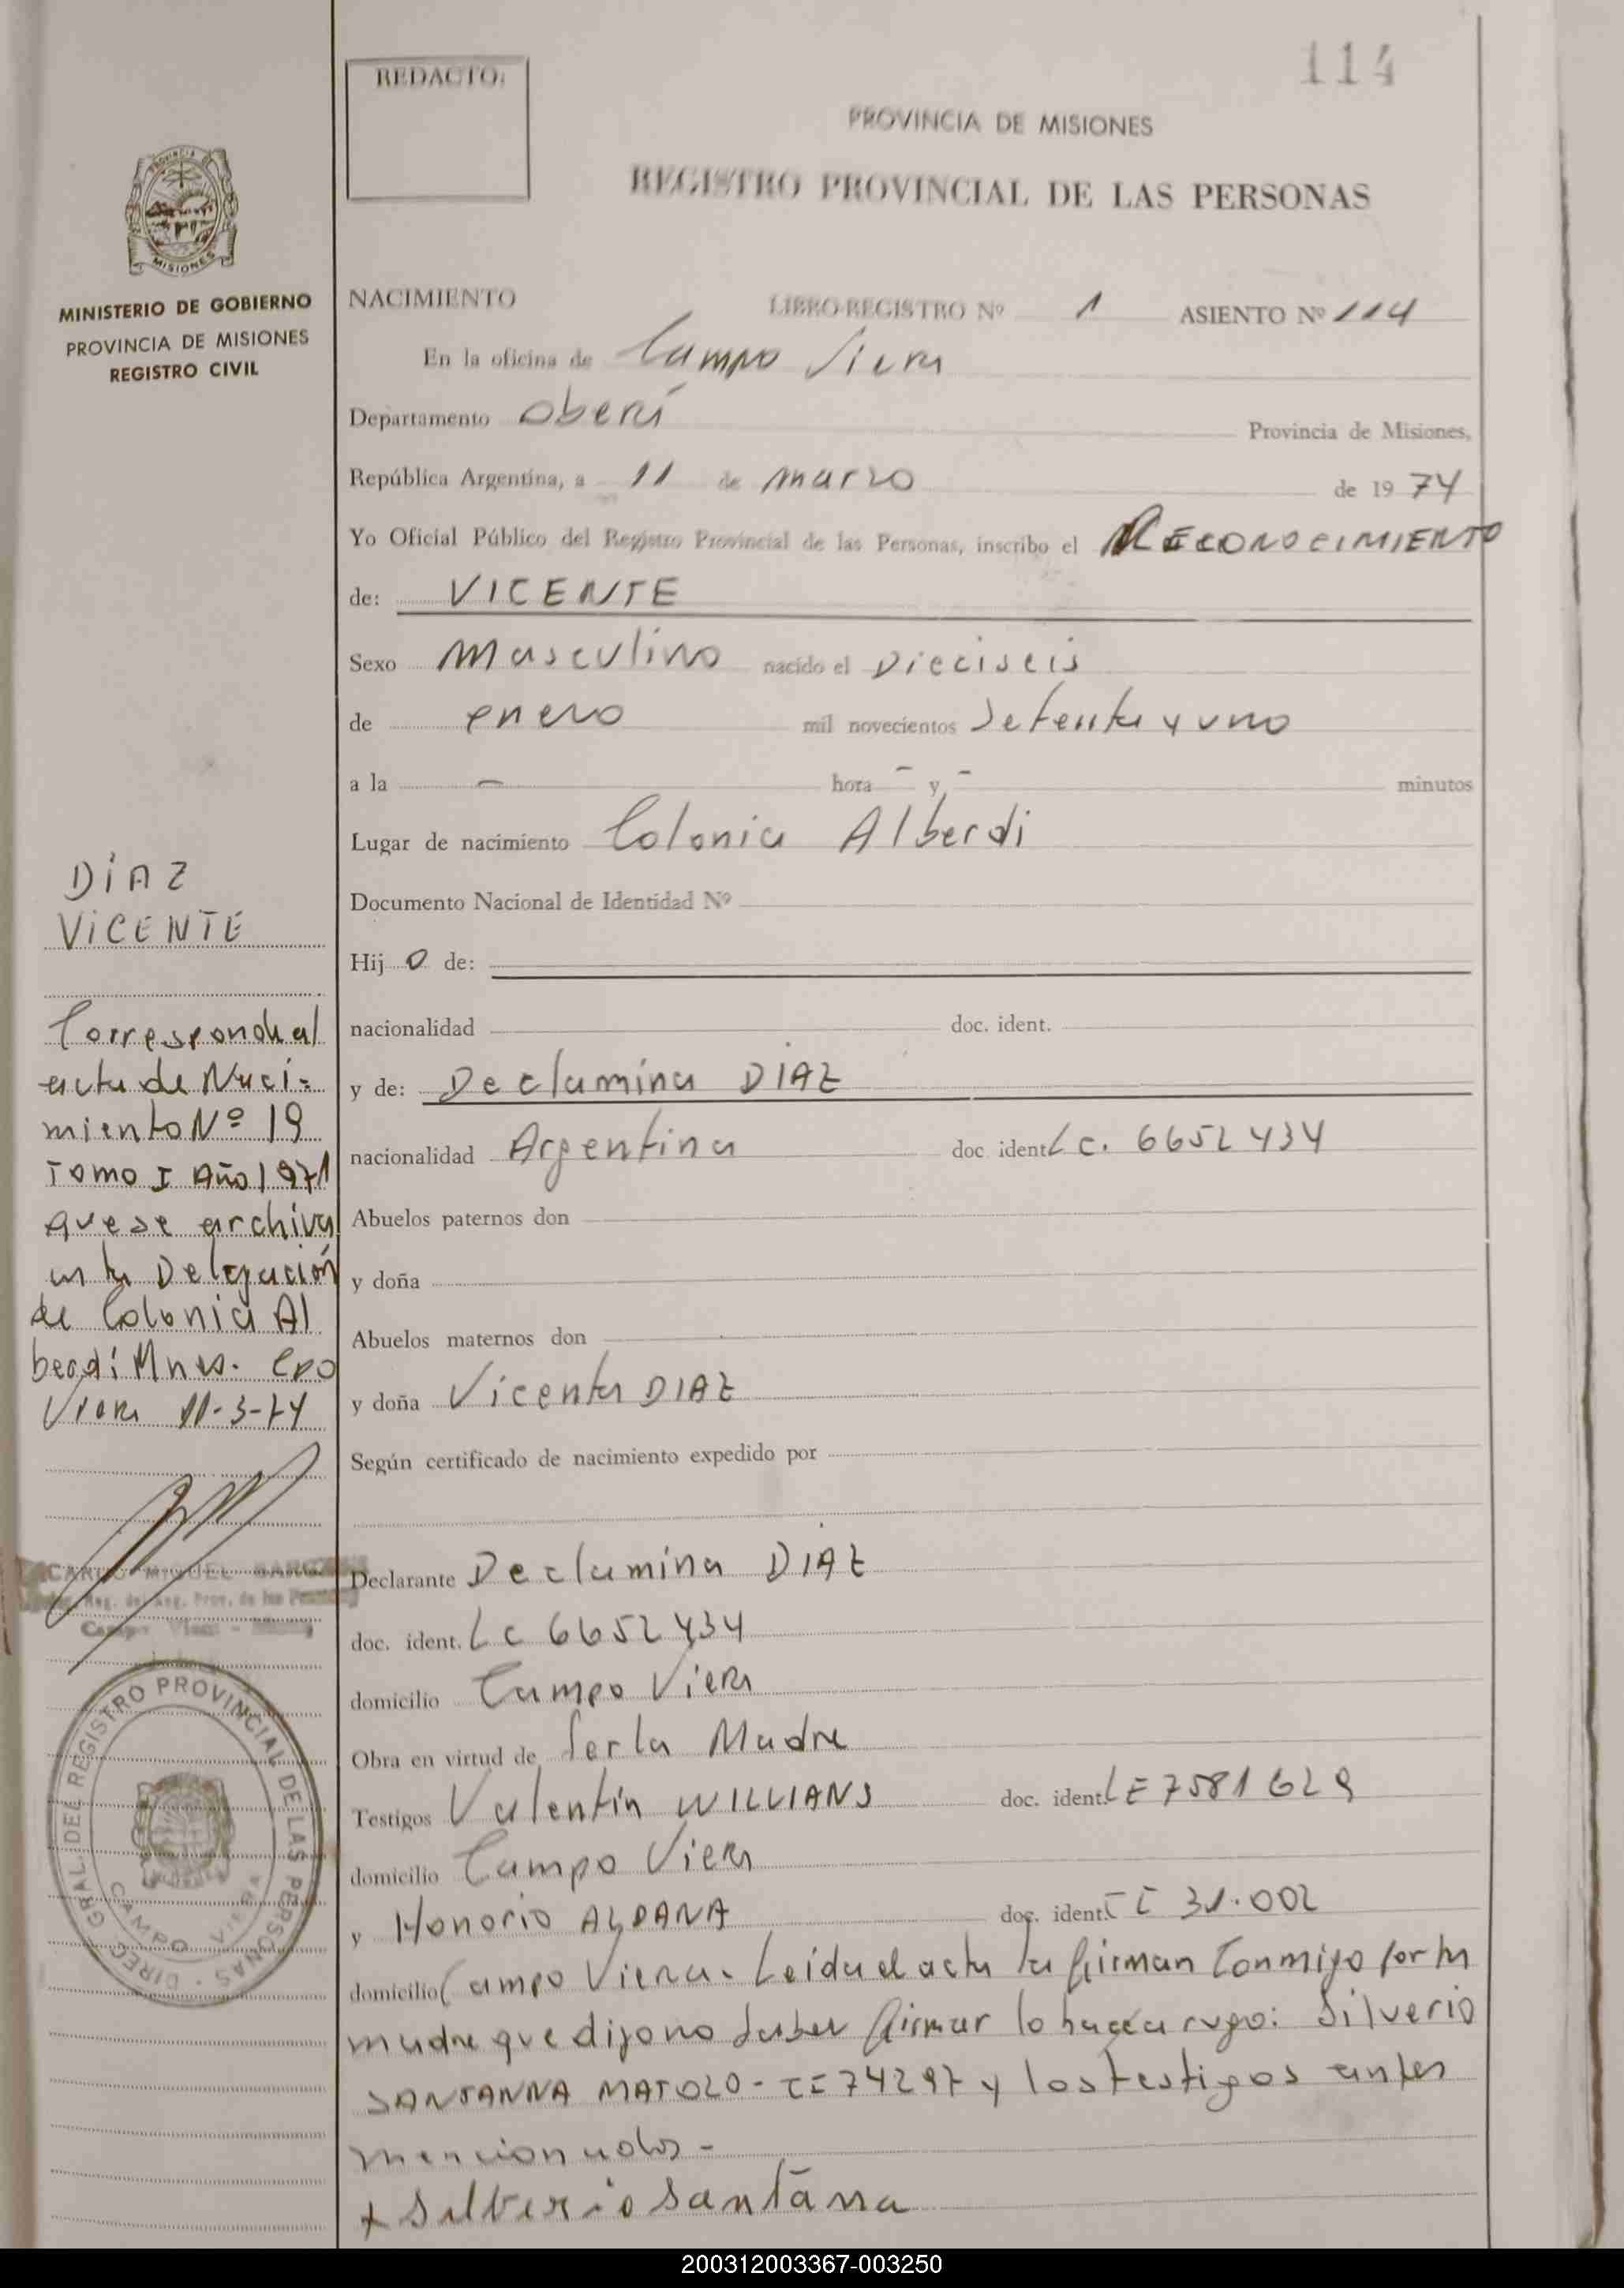 114
REDACTO:
PROVINCIA DE MISIONES
REGISTRO PROVINCIAL DE LAS PERSONAS
MISIONES
MINISTERIO DE GOBIERNO
PROVINCIA DE MISIONES
REGISTRO CIVIL
NACIMIENTO LIBRO-REGISTRO Nº 1 ASIENTO Nº 114
En la oficina de Campo Viera
Departamento Oberá Provincia de Misiones,
República Argentina, a 11 de marzo de 1974
Yo Oficial Público del Registro Provincial de las Personas, inscribo el RECONOCIMIENTO
de: VICENTE
Sexo Masculino nacido el Dieciseis
de enero mil novecientos setenta y uno
a la - hora - y - minutos
Lugar de nacimiento Colonia Alberdi
Documento Nacional de Identidad Nº
Hij o de:
nacionalidad doc. ident.
y de: Declamina DIAZ
nacionalidad Argentina doc. ident. LC. 6652434
Abuelos paternos don
y doña
Abuelos maternos don
y doña Vicenta DIAZ
Según certificado de nacimiento expedido por
Declarante Declamina DIAZ
doc. ident. LC 6652434
domicilio Campo Viera
Obra en virtud de Ser la Madre
Testigos Valentín WILLIANS doc. ident. LE 7581629
domicilio Campo Viera
y Honorio ALDANA doc. ident. CI 31.002
domicilio Campo Viera. Leida el acta la firman Conmigo por la
madre que dijo no saber firmar lo hace a rugo: Silverio
SANTANNA MATOZO - CI 74297 y los testigos antes
mencionados -
+ Silberio Santãna
DIAZ
VICENTE
Corresponde al
acta de Naci=
miento Nº 19
Tomo I Año 1971
que se archiva
en la Delegación
de Colonia Al
berdi Mnes. Cpo
Viera 11-3-74
MIGUEL
Campo Viera
DIREC. GRAL. DEL REGISTRO PROVINCIAL DE LAS PERSONAS
CAMPO VIERA
200312003367-003250